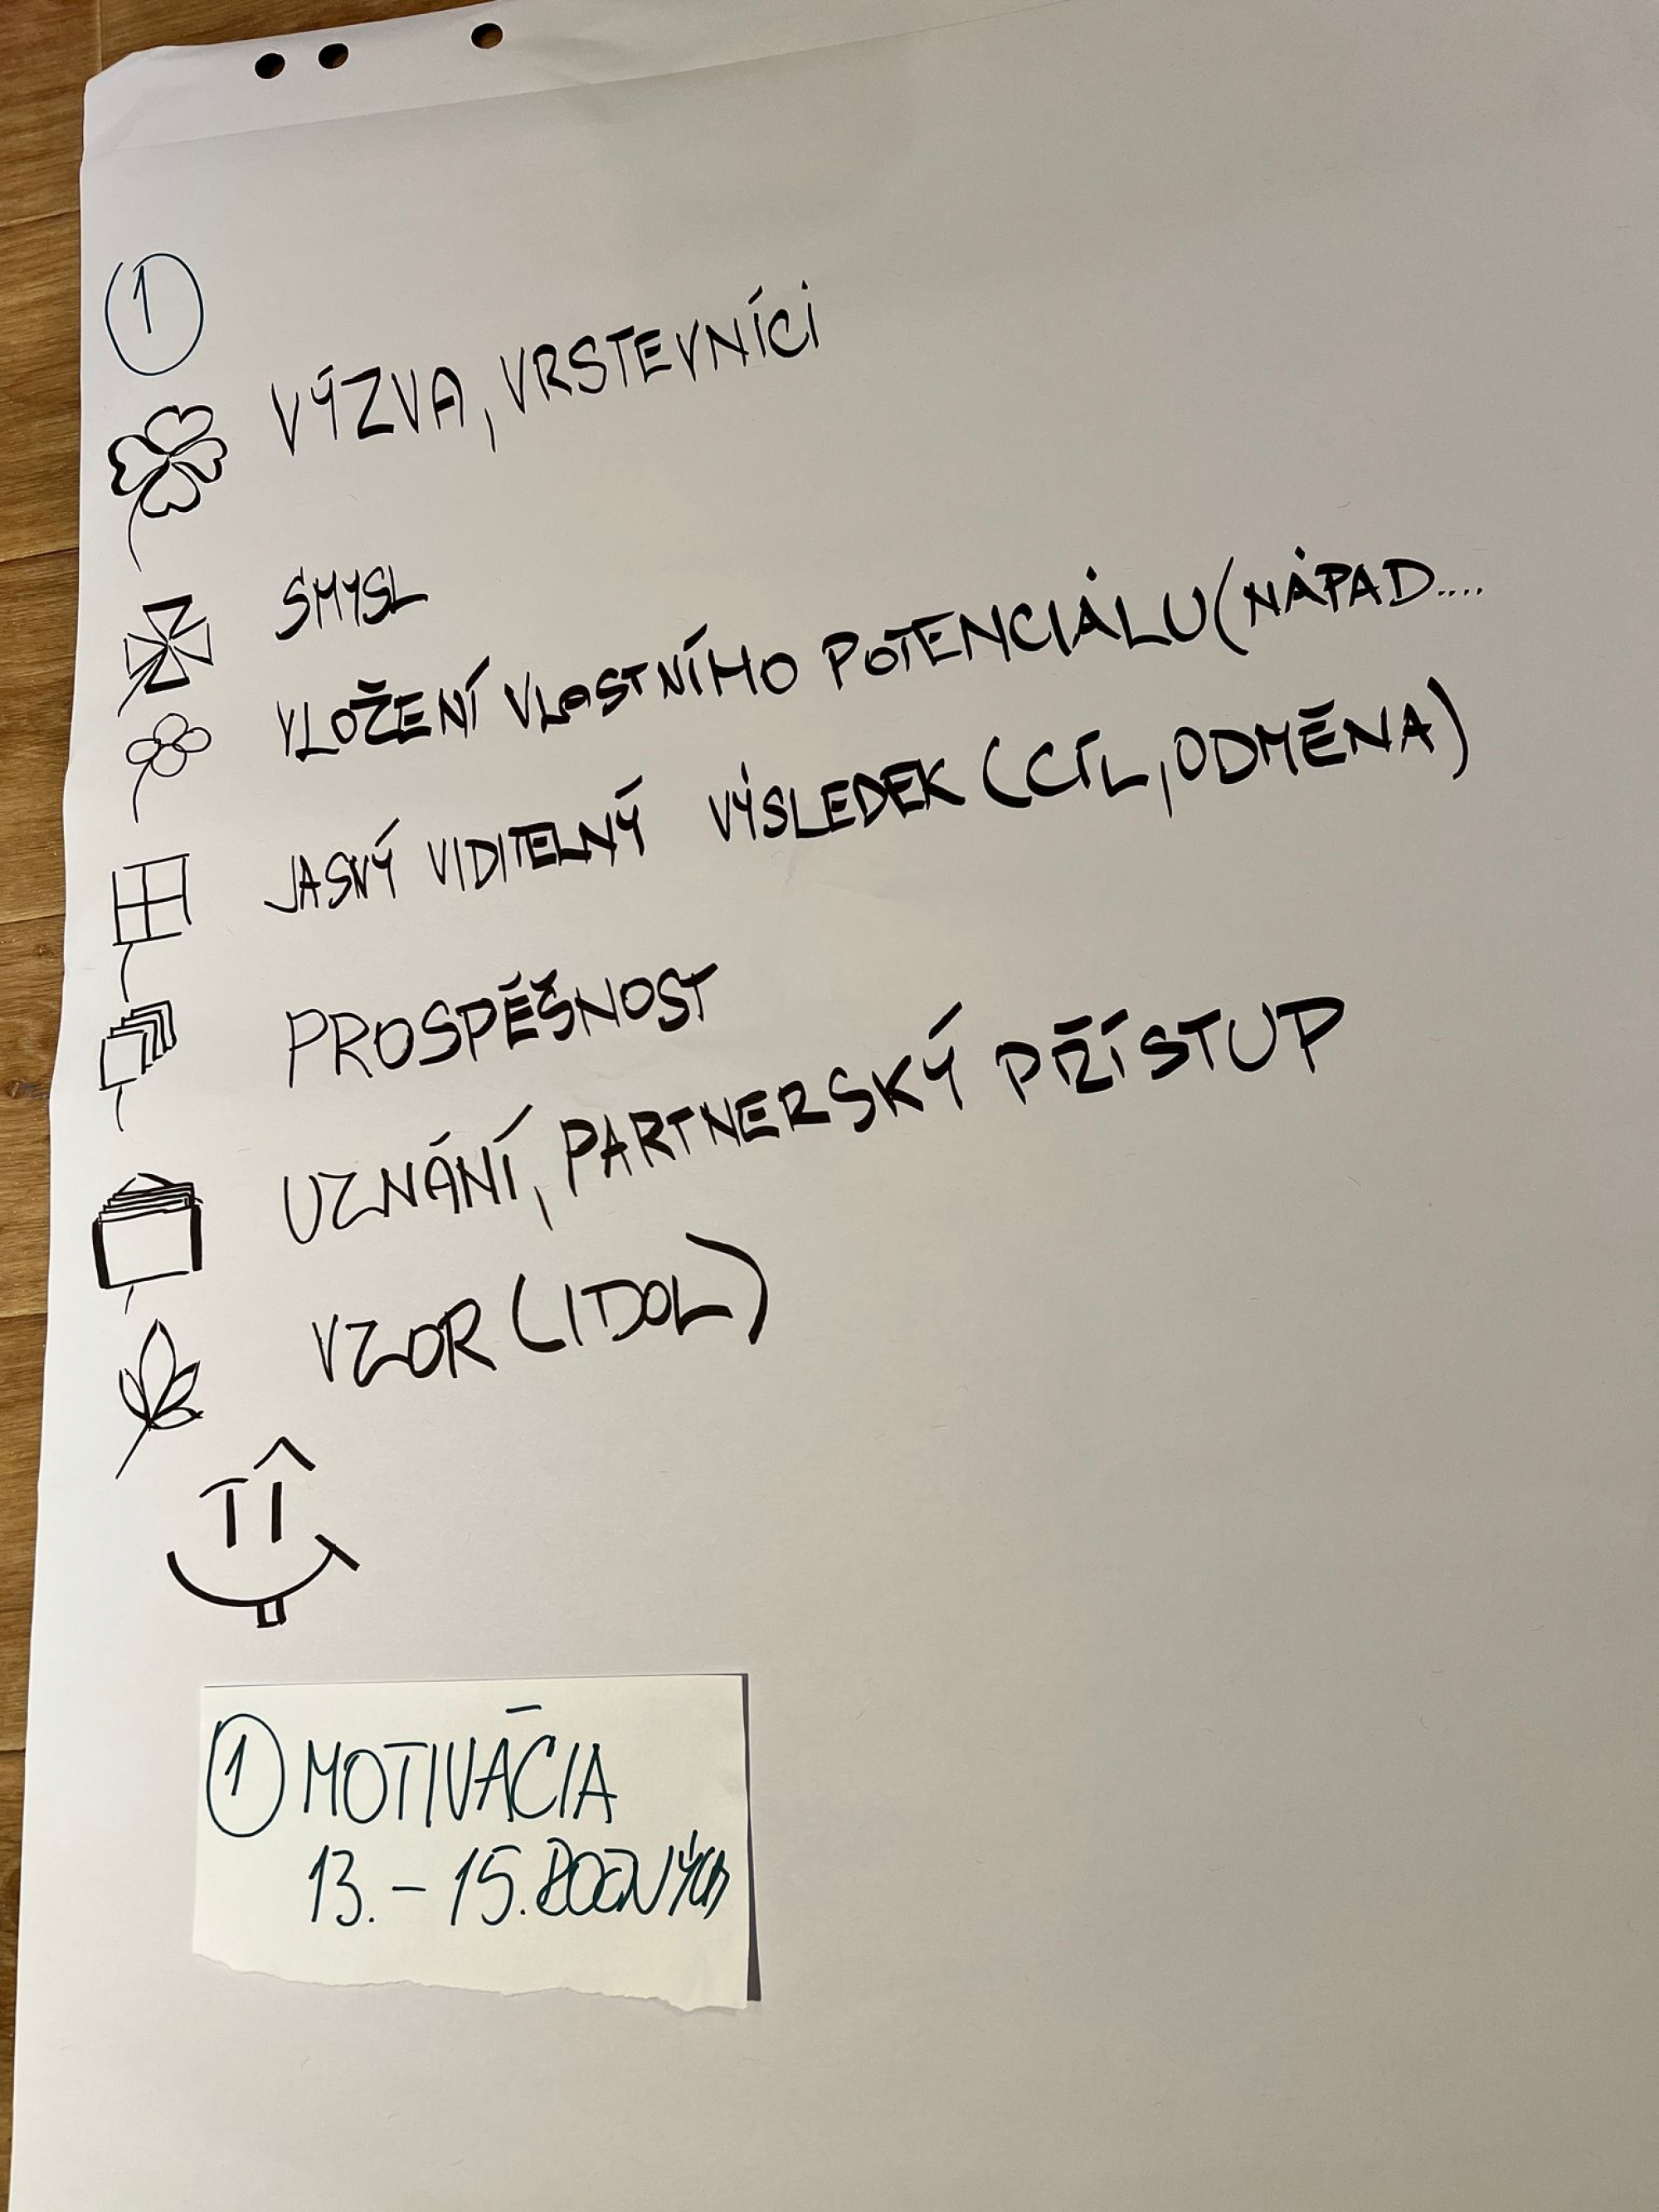 1
VÝZVA, VRSTEVNÍCI
SMYSL
VLOŽENÍ VLASTNÍHO POTENCIÁLU (NÁPAD....
JASNÝ VIDITELNÝ VÝSLEDEK (CÍL, ODMĚNA)
PROSPĚŠNOST
UZNÁNÍ, PARTNERSKÝ PŘÍSTUP
VZOR (IDOL)
1 MOTIVÁCIA
13. - 15. ROČNÝCH